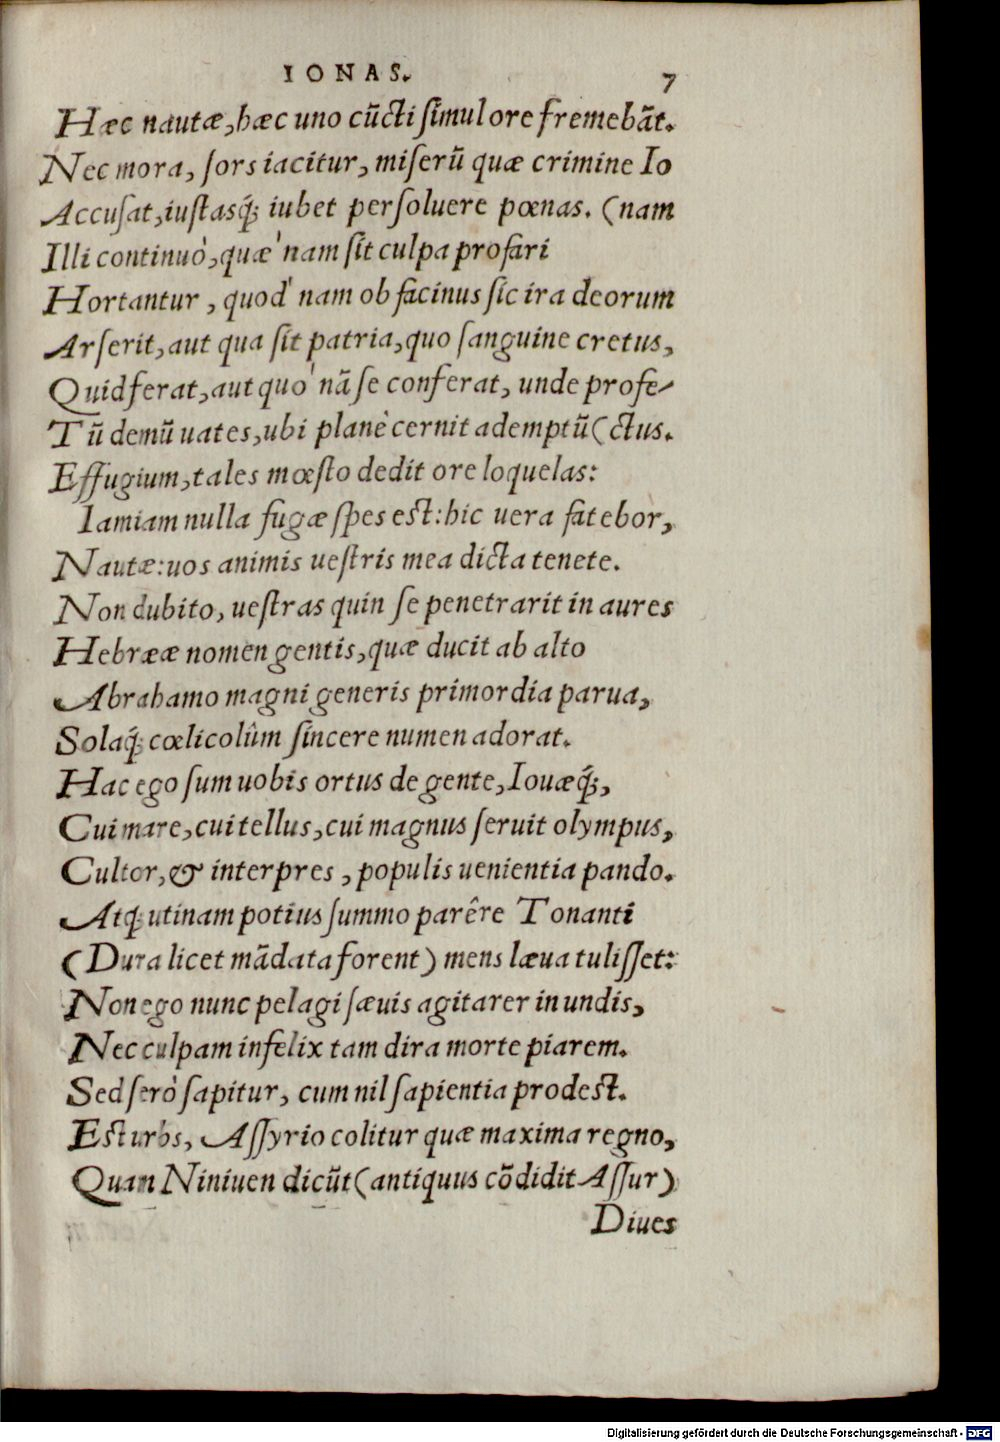 IONAS. 7
Hæc nautæ, hæc uno cũcti ſimul ore fremebãt.
Nec mora, ſors iacitur, miſerũ quæ crimine Io
Accuſat, iuſtasq́; iubet perſoluere pœnas. (nam
Illi continuò, quæ'nam ſit culpa profari
Hortantur, quod'nam ob facinus ſic ira deorum
Arſerit, aut qua ſit patria, quo ſanguine cretus,
Quid ferat, aut quo'nã ſe conferat, unde profe-
Tũ demũ uates, ubi planè cernit ademptũ (ctus.
Effugium, tales mœſto dedit ore loquelas:
Iamiam nulla fugæ ſpes eſt: hic uera fatebor,
Nautæ: uos animis ueſtris mea dicta tenete.
Non dubito, ueſtras quin ſe penetrarit in aures
Hebrææ nomen gentis, quæ ducit ab alto
Abrahamo magni generis primordia parua,
Solaq́; cœlicolûm ſincere numen adorat.
Hac ego ſum uobis ortus de gente, Iouæq́;,
Cui mare, cui tellus, cui magnus ſeruit olympus,
Cultor, & interpres, populis uenientia pando.
Atq; utinam potius ſummo parêre Tonanti
(Dura licet mãdata forent) mens læua tuliſſet:
Non ego nunc pelagi ſæuis agitarer in undis,
Nec culpam infelix tam dira morte piarem.
Sed ſerò ſapitur, cum nil ſapientia prodeſt.
Eſt urbs, Aſſyrio colitur quæ maxima regno,
Quam Niniuen dicũt (antiquus cõdidit Aſſur)
Diues
Digitalisierung gefördert durch die Deutsche Forschungsgemeinschaft - DFG